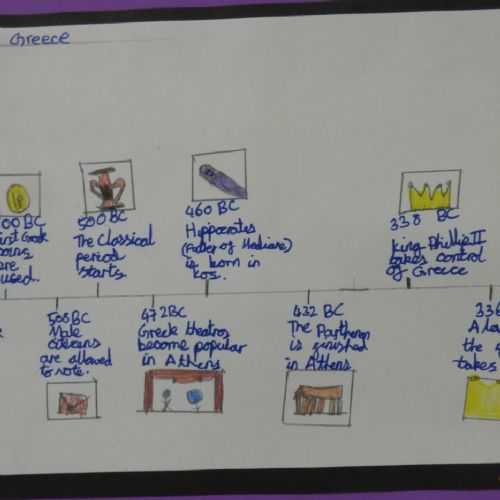 Greece
1p
00 BC
irst Greek
coins
are
used.
500 BC
The Classical
period
starts.
460 BC
Hippocrates
(Father of Madicine)
is born in
Kos.
338 BC
King Phillip II
takes control
of Greece
508 BC
Male
are allowed
to vote.
472 BC
Greek theatres
become popular
in Athens
432 BC
The Parthenon
is finished
in Athens
336
the
takes